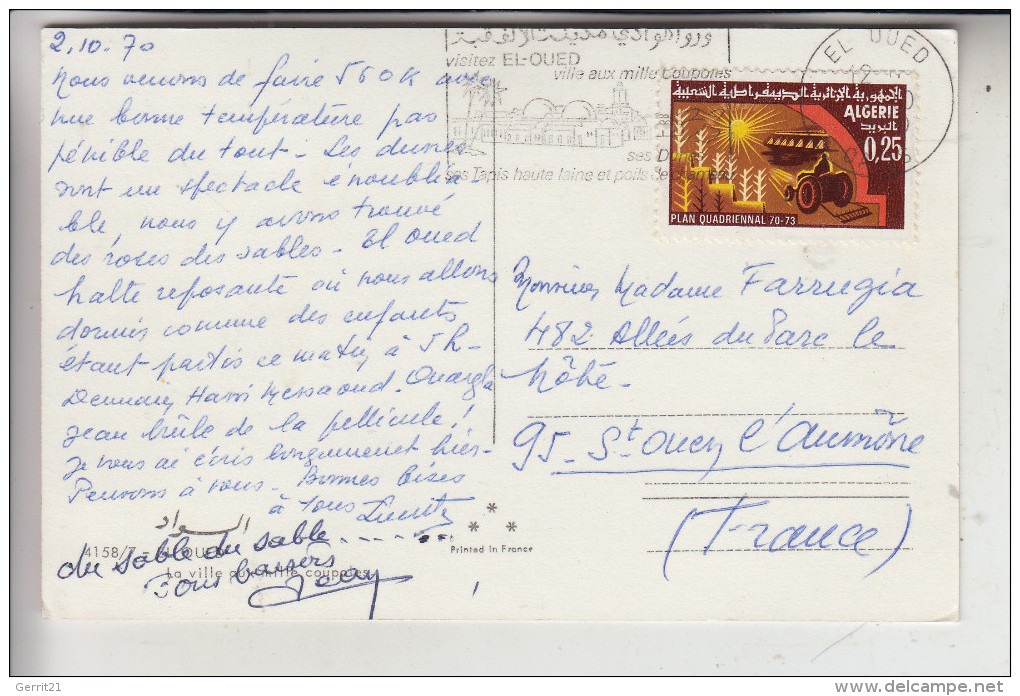 2.10.70
Nous venons de faire 560 K avec
une bonne température pas
pénible du tout - Les dunes
sont un spectacle enoublia
ble, nous y avons trouvé
des roses des sables - El Oued
halte reposante où nous allons
dormir comme des enfants
étant partis ce matin à 5h-
Demain Hassi Messaoud. Ouargla
Jean brûle de la pellicule!
Je vous ai écris longuement hier-
Pensons à vous - Bonnes bises
à tous
du sable du sable......
Bons baisers
Jean
السواد
4158/7 - EL OUED
La ville aux mille coupoles
Printed in France
visitez EL-OUED
ville aux mille coupoles
ses Dunes
ses Tapis haute laine et poils de chameau
EL OUED
الجمهورية الجزائرية الديمقراطية الشعبية
ALGERIE
البريد
0,25
PLAN QUADRIENNAL 70-73
Monsieur Madame Farrugia
482 Allées du Parc le
Nôtre-
95- St Ouen l'Aumône
(France)
Gerrit21
delcampe.net